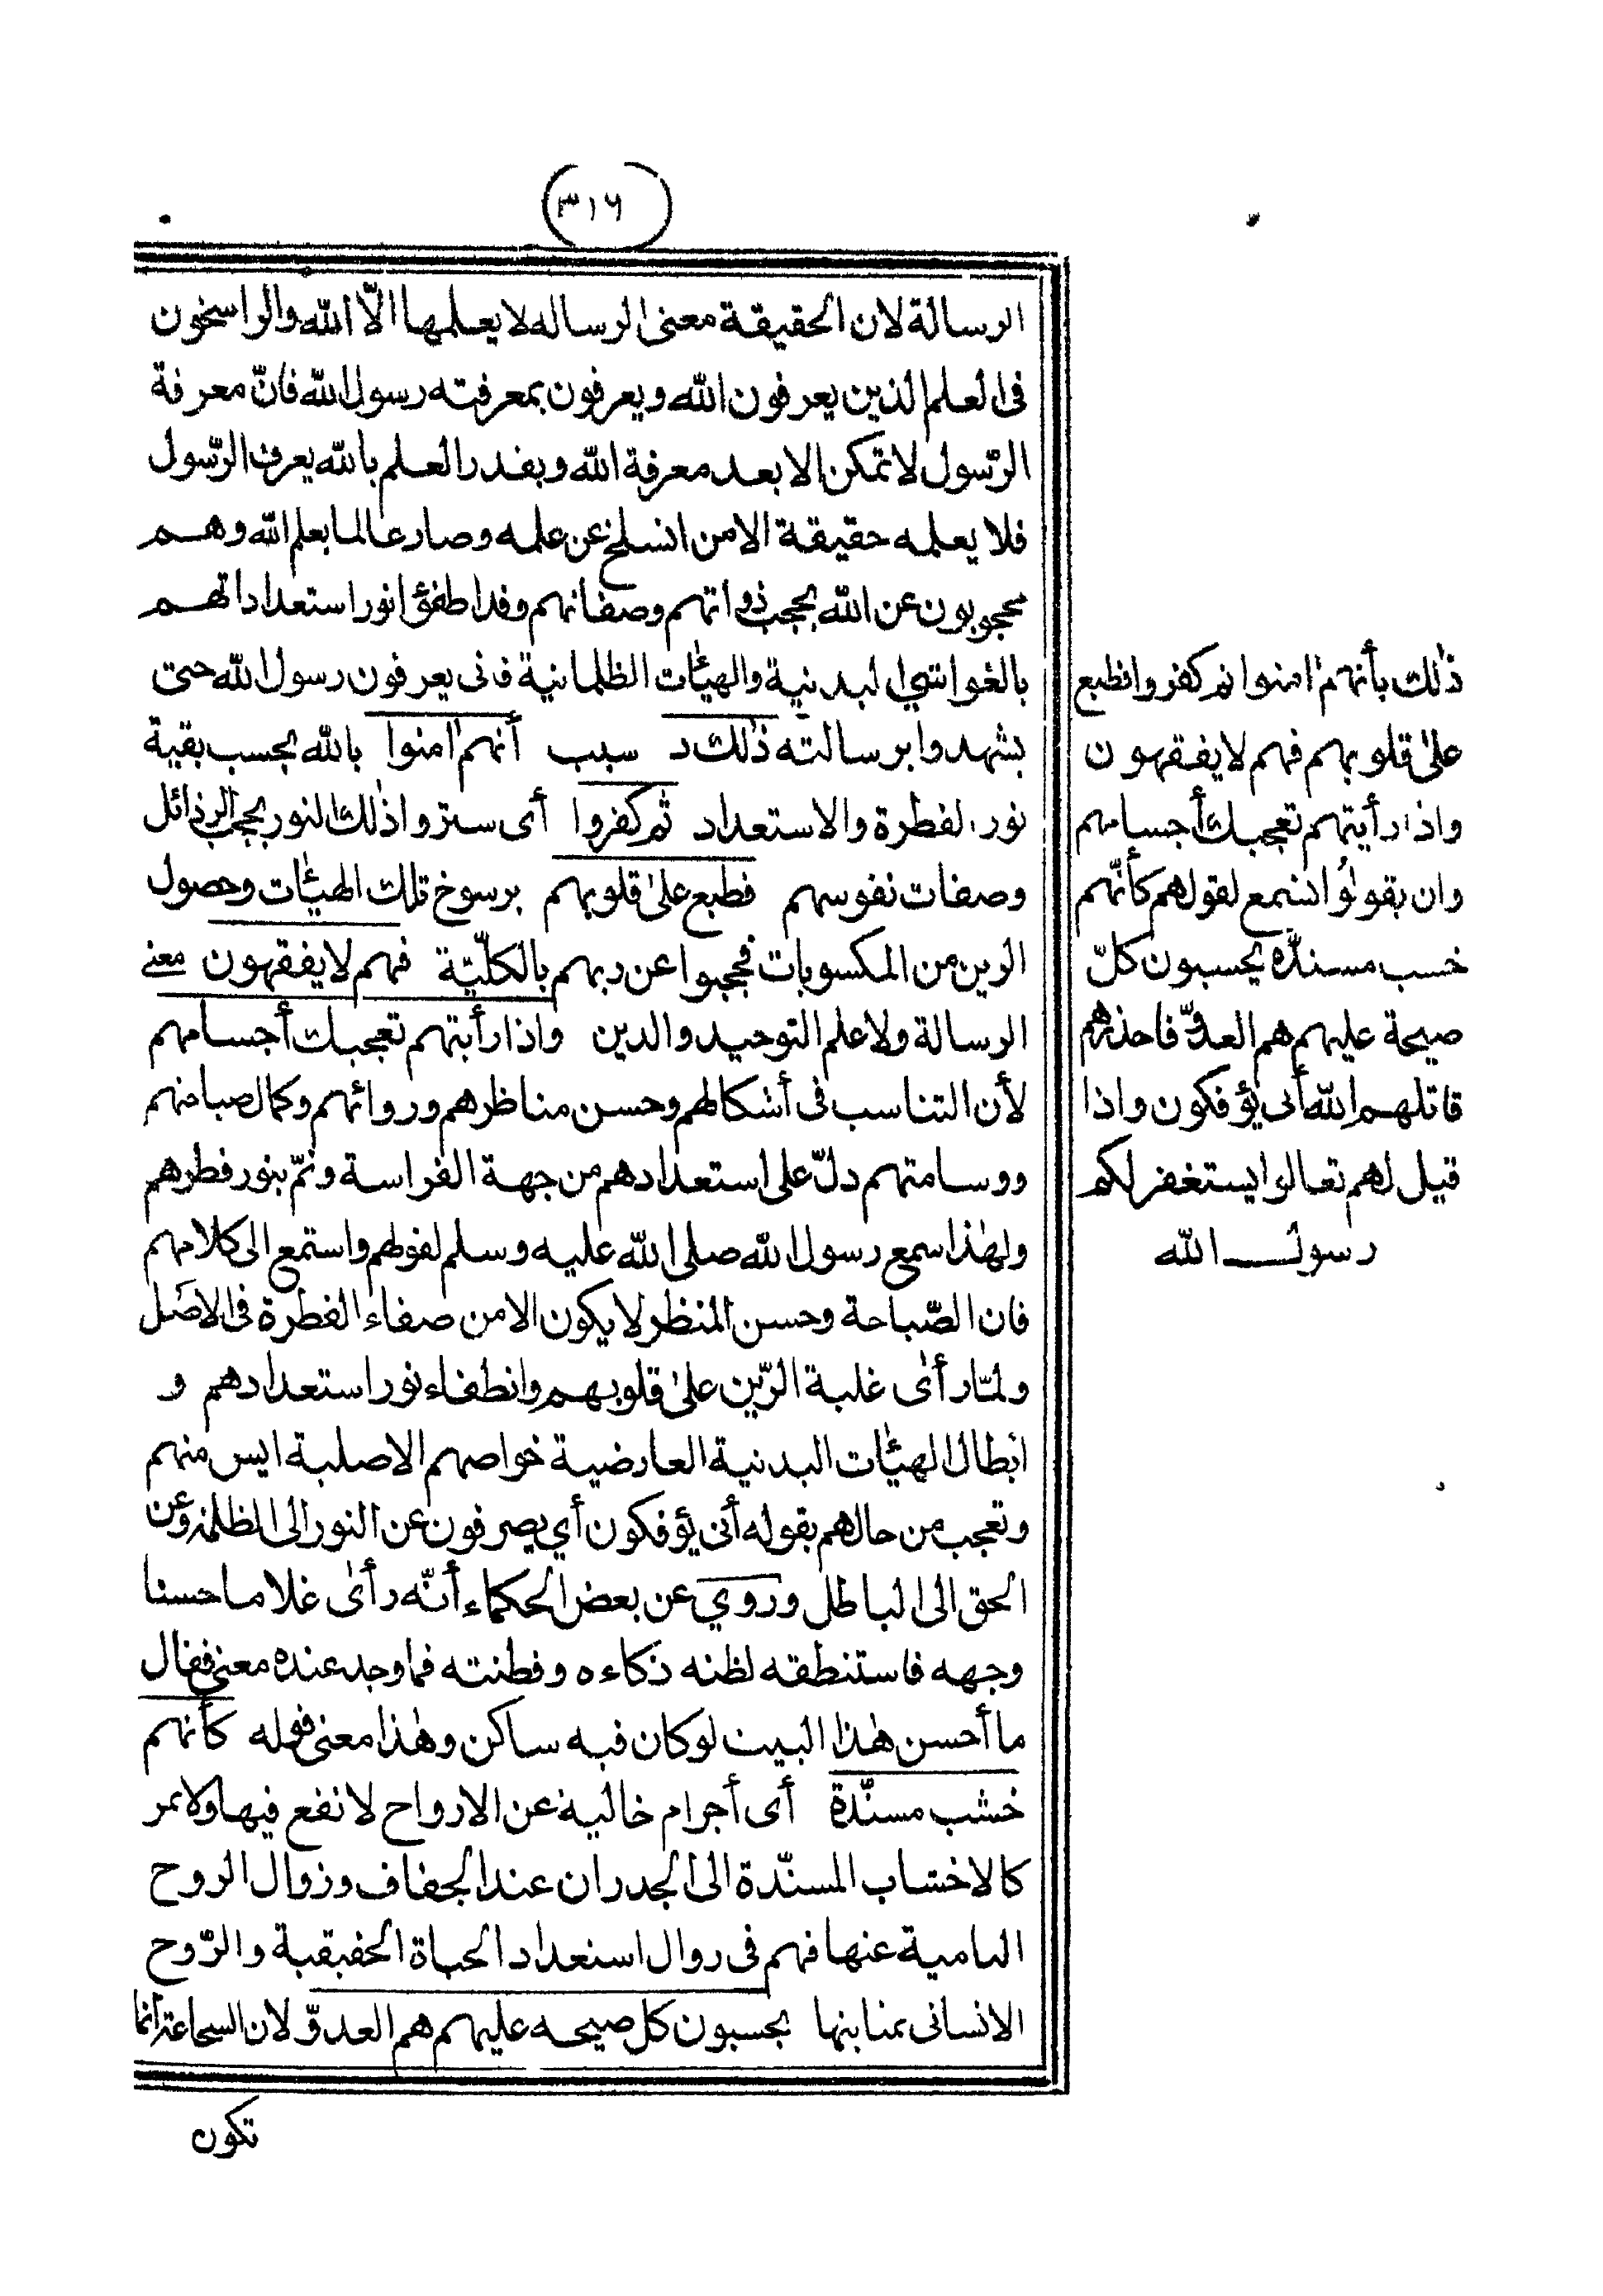 (٣١٦)
الرسالة لان الحقيقة معنى الرساله لا يعلمها الّا الله والراسخون
فى العلم الذين يعرفون الله ويعرفون بمعرفته رسول الله فانّ معرفة
الرّسول لا تمكن الا بعد معرفة الله وبقدر العلم بالله يعرف الرّسول
فلا يعلمه حقيقة الا من انسلخ عن علمه وصار عالما بعلم الله وهم
محجوبون عن الله بحجب ذواتهم وصفاتهم وقد اطفئوا نور استعداداتهم
بالغواشى البدنية والهيآت الظلمانية فانى يعرفون رسول الله حتى
يشهدوا برسالته ذٰلك ب سبب أنهم اٰمنوا بالله بحسب بقية
نور الفطرة والاستعداد ثم كفروا أى ستروا ذٰلك النور بحجب الرذائل
وصفات نفوسهم فطبع علىٰ قلوبهم برسوخ تلك الهيآت وحصول
الرين من المكسوبات فحجبوا عن ربهم بالكلّيّة فهم لا يفقهون معنى
الرسالة ولا علم التوحيد والدين واذا رأيتهم تعجبك أجسامهم
لأن التناسب فى أشكالهم وحسن مناظرهم وروائهم وكمال صباحتهم
ووسامتهم دلّ على استعدادهم من جهة الفراسة ونمّ بنور فطرهم
ولهٰذا سمع رسول الله صلى الله عليه وسلم لقولهم واستمع الى كلامهم
فان الصّباحة وحسن المنظر لا يكون الا من صفاء الفطرة فى الاصل
ولمّا رأىٰ غلبة الرّين علىٰ قلوبهم وانطفاء نور استعدادهم و
ابطال الهيآت البدنية العارضية خواصهم الاصلية ايس منهم
وتعجب من حالهم بقوله أنى يؤفكون أي يصرفون عن النور الى الظلمة وعن
الحق الى الباطل وروي عن بعض الحكماء أنّه رأىٰ غلاما حسنا
وجهه فاستنطقه لظنه ذكاءه وفطنته فما وجد عنده معنى فقال
ما أحسن هٰذا البيت لو كان فيه ساكن وهٰذا معنى قوله كأنهم
خشب مسنّدة أى أجرام خالية عن الارواح لا نفع فيها ولا ثمر
كالاخشاب المسنّدة الى الجدران عند الجفاف وزوال الروح
النامية عنها فهم فى زوال استعداد الحياة الحقيقية والرّوح
الانسانى بمثابتها يحسبون كل صيحه عليهم هم العدوّ لان الشجاعة انما
تكون
ذٰلك بأنهم اٰمنوا ثم كفروا فطبع
علىٰ قلوبهم فهم لا يفقهون
واذا رأيتهم تعجبك أجسامهم
وان يقولوُا تسمع لقولهم كأنّهم
خسب مسندّه يحسبون كلّ
صيحة عليهم هم العدوّ فاحذرهم
قاتلهم الله أنى يؤفكون واذا
قيل لهم تعالوا يستغفر لكم
رسول الله